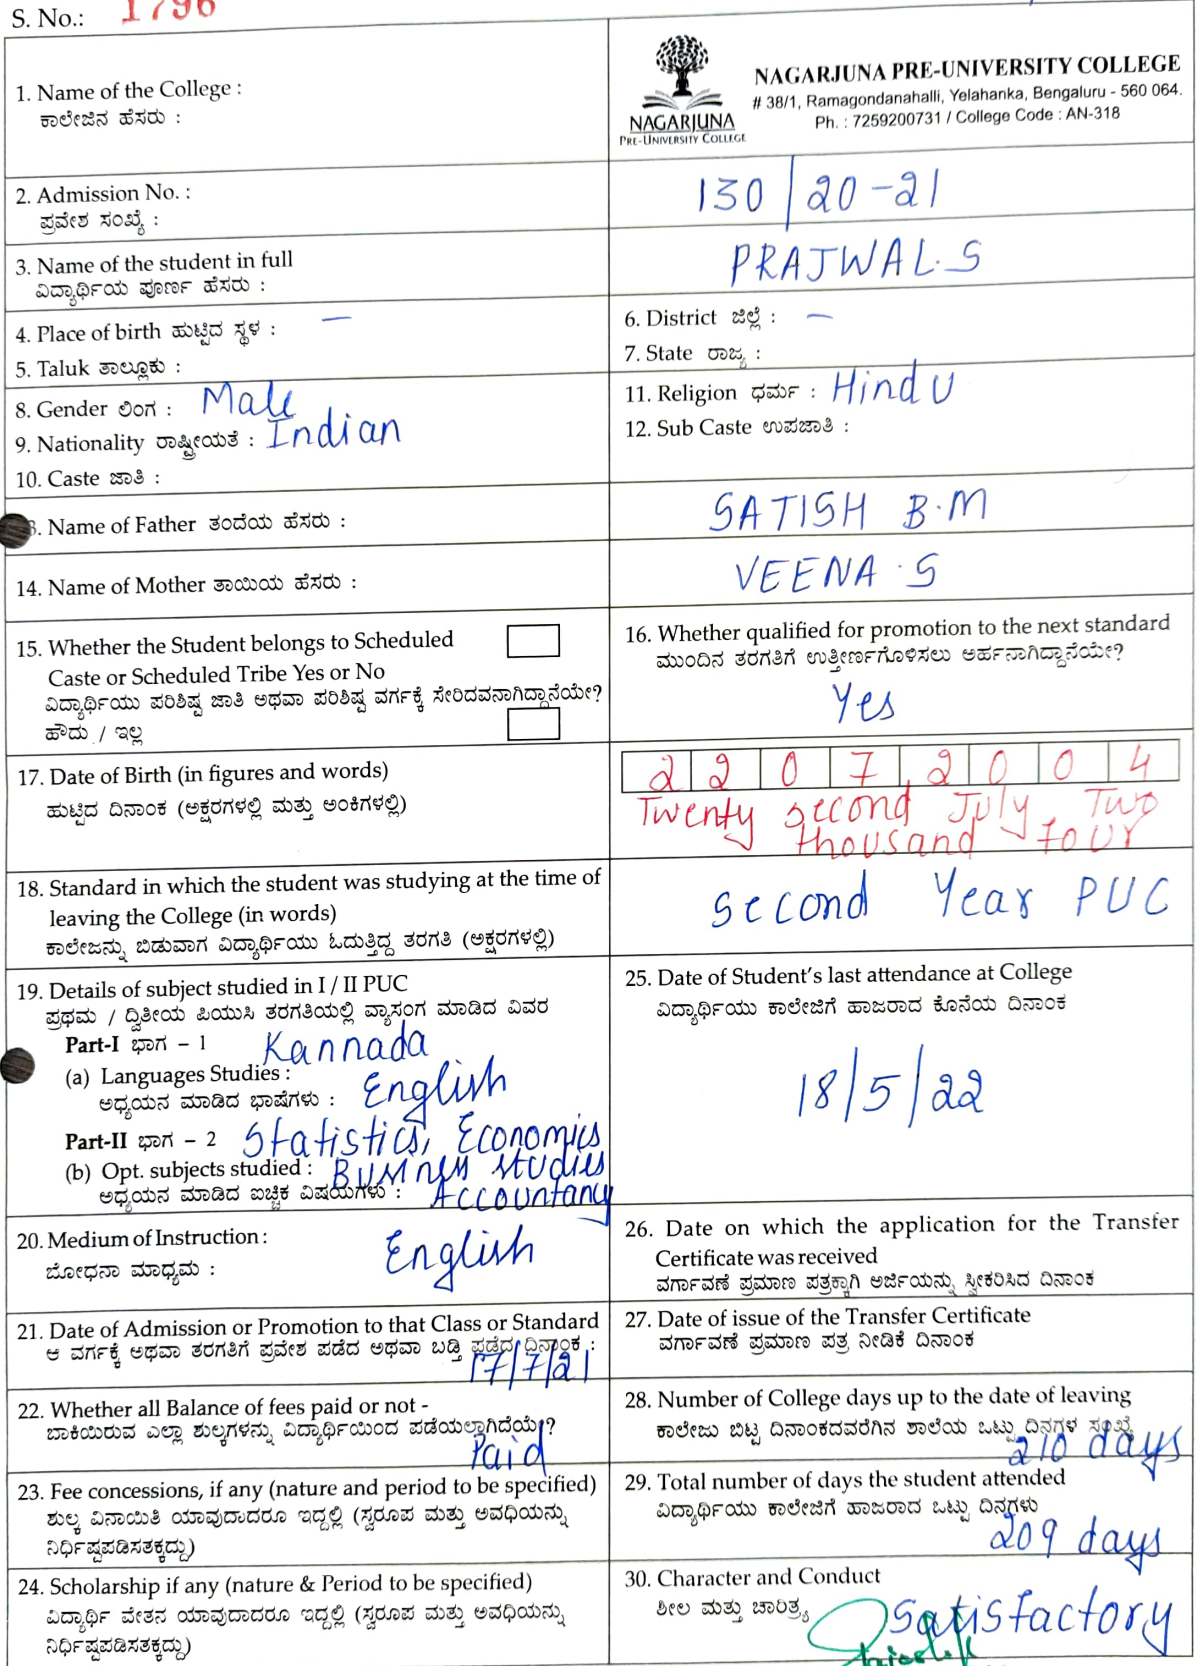 S. No.: 1796
1. Name of the College :
ಕಾಲೇಜಿನ ಹೆಸರು :
NAGARJUNA
PRE-UNIVERSITY COLLEGE
NAGARJUNA PRE-UNIVERSITY COLLEGE
# 38/1, Ramagondanahalli, Yelahanka, Bengaluru - 560 064.
Ph. : 7259200731 / College Code : AN-318
2. Admission No. :
ಪ್ರವೇಶ ಸಂಖ್ಯೆ :
130/20-21
3. Name of the student in full
ವಿದ್ಯಾರ್ಥಿಯ ಪೂರ್ಣ ಹೆಸರು :
PRAJWAL.S
4. Place of birth ಹುಟ್ಟಿದ ಸ್ಥಳ : —
5. Taluk ತಾಲ್ಲೂಕು :
6. District ಜಿಲ್ಲೆ : —
7. State ರಾಜ್ಯ :
8. Gender ಲಿಂಗ : Male
9. Nationality ರಾಷ್ಟ್ರೀಯತೆ : Indian
10. Caste ಜಾತಿ :
11. Religion ಧರ್ಮ : Hindu
12. Sub Caste ಉಪಜಾತಿ :
3. Name of Father ತಂದೆಯ ಹೆಸರು :
SATISH B.M
14. Name of Mother ತಾಯಿಯ ಹೆಸರು :
VEENA.S
15. Whether the Student belongs to Scheduled
Caste or Scheduled Tribe Yes or No
ವಿದ್ಯಾರ್ಥಿಯು ಪರಿಶಿಷ್ಟ ಜಾತಿ ಅಥವಾ ಪರಿಶಿಷ್ಟ ವರ್ಗಕ್ಕೆ ಸೇರಿದವನಾಗಿದ್ದಾನೆಯೇ?
ಹೌದು / ಇಲ್ಲ
16. Whether qualified for promotion to the next standard
ಮುಂದಿನ ತರಗತಿಗೆ ಉತ್ತೀರ್ಣಗೊಳಿಸಲು ಅರ್ಹನಾಗಿದ್ದಾನೆಯೇ?
Yes
17. Date of Birth (in figures and words)
ಹುಟ್ಟಿದ ದಿನಾಂಕ (ಅಕ್ಷರಗಳಲ್ಲಿ ಮತ್ತು ಅಂಕಿಗಳಲ್ಲಿ)
2 2 0 7 2 0 0 4
Twenty second July Two
thousand four
18. Standard in which the student was studying at the time of
leaving the College (in words)
ಕಾಲೇಜನ್ನು ಬಿಡುವಾಗ ವಿದ್ಯಾರ್ಥಿಯು ಓದುತ್ತಿದ್ದ ತರಗತಿ (ಅಕ್ಷರಗಳಲ್ಲಿ)
Second Year PUC
19. Details of subject studied in I / II PUC
ಪ್ರಥಮ / ದ್ವಿತೀಯ ಪಿಯುಸಿ ತರಗತಿಯಲ್ಲಿ ವ್ಯಾಸಂಗ ಮಾಡಿದ ವಿವರ
Part-I ಭಾಗ – 1 Kannada
(a) Languages Studies : English
ಅಧ್ಯಯನ ಮಾಡಿದ ಭಾಷೆಗಳು :
Part-II ಭಾಗ – 2 Statistics, Economics
(b) Opt. subjects studied : Business studies
ಅಧ್ಯಯನ ಮಾಡಿದ ಐಚ್ಚಿಕ ವಿಷಯಗಳು : Accountancy
25. Date of Student's last attendance at College
ವಿದ್ಯಾರ್ಥಿಯು ಕಾಲೇಜಿಗೆ ಹಾಜರಾದ ಕೊನೆಯ ದಿನಾಂಕ
18/5/22
20. Medium of Instruction :
ಬೋಧನಾ ಮಾಧ್ಯಮ :
English
26. Date on which the application for the Transfer
Certificate was received
ವರ್ಗಾವಣೆ ಪ್ರಮಾಣ ಪತ್ರಕ್ಕಾಗಿ ಅರ್ಜಿಯನ್ನು ಸ್ವೀಕರಿಸಿದ ದಿನಾಂಕ
21. Date of Admission or Promotion to that Class or Standard
ಆ ವರ್ಗಕ್ಕೆ ಅಥವಾ ತರಗತಿಗೆ ಪ್ರವೇಶ ಪಡೆದ ಅಥವಾ ಬಡ್ತಿ ಪಡೆದ ದಿನಾಂಕ :
17/7/21
27. Date of issue of the Transfer Certificate
ವರ್ಗಾವಣೆ ಪ್ರಮಾಣ ಪತ್ರ ನೀಡಿಕೆ ದಿನಾಂಕ
22. Whether all Balance of fees paid or not -
ಬಾಕಿಯಿರುವ ಎಲ್ಲಾ ಶುಲ್ಕಗಳನ್ನು ವಿದ್ಯಾರ್ಥಿಯಿಂದ ಪಡೆಯಲಾಗಿದೆಯೇ?
Paid
28. Number of College days up to the date of leaving
ಕಾಲೇಜು ಬಿಟ್ಟ ದಿನಾಂಕದವರೆಗಿನ ಶಾಲೆಯ ಒಟ್ಟು ದಿನಗಳ ಸಂಖ್ಯೆ
210 days
23. Fee concessions, if any (nature and period to be specified)
ಶುಲ್ಕ ವಿನಾಯಿತಿ ಯಾವುದಾದರೂ ಇದ್ದಲ್ಲಿ (ಸ್ವರೂಪ ಮತ್ತು ಅವಧಿಯನ್ನು
ನಿರ್ಧಿಷ್ಟಪಡಿಸತಕ್ಕದ್ದು)
29. Total number of days the student attended
ವಿದ್ಯಾರ್ಥಿಯು ಕಾಲೇಜಿಗೆ ಹಾಜರಾದ ಒಟ್ಟು ದಿನಗಳು
209 days
24. Scholarship if any (nature & Period to be specified)
ವಿದ್ಯಾರ್ಥಿ ವೇತನ ಯಾವುದಾದರೂ ಇದ್ದಲ್ಲಿ (ಸ್ವರೂಪ ಮತ್ತು ಅವಧಿಯನ್ನು
ನಿರ್ಧಿಷ್ಟಪಡಿಸತಕ್ಕದ್ದು)
30. Character and Conduct
ಶೀಲ ಮತ್ತು ಚಾರಿತ್ರ್ಯ
Satisfactory